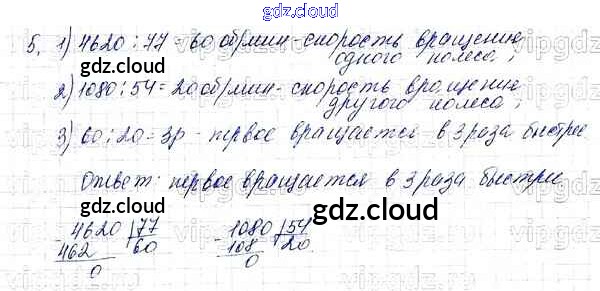 gdz.cloud
5. 1) 4620 : 77 = 60 об/мин - скорость вращения
одного колеса;
gdz.cloud
2) 1080 : 54 = 20 об/мин - скорость вращения
другого колеса;
3) 60 : 20 = 3 р - первое вращается в 3 раза быстрее
Ответ: первое вращается в 3 раза быстрее
gdz.cloud gdz.cloud
4620 | 77 - 1080 | 54
462 60 108 20
0 0